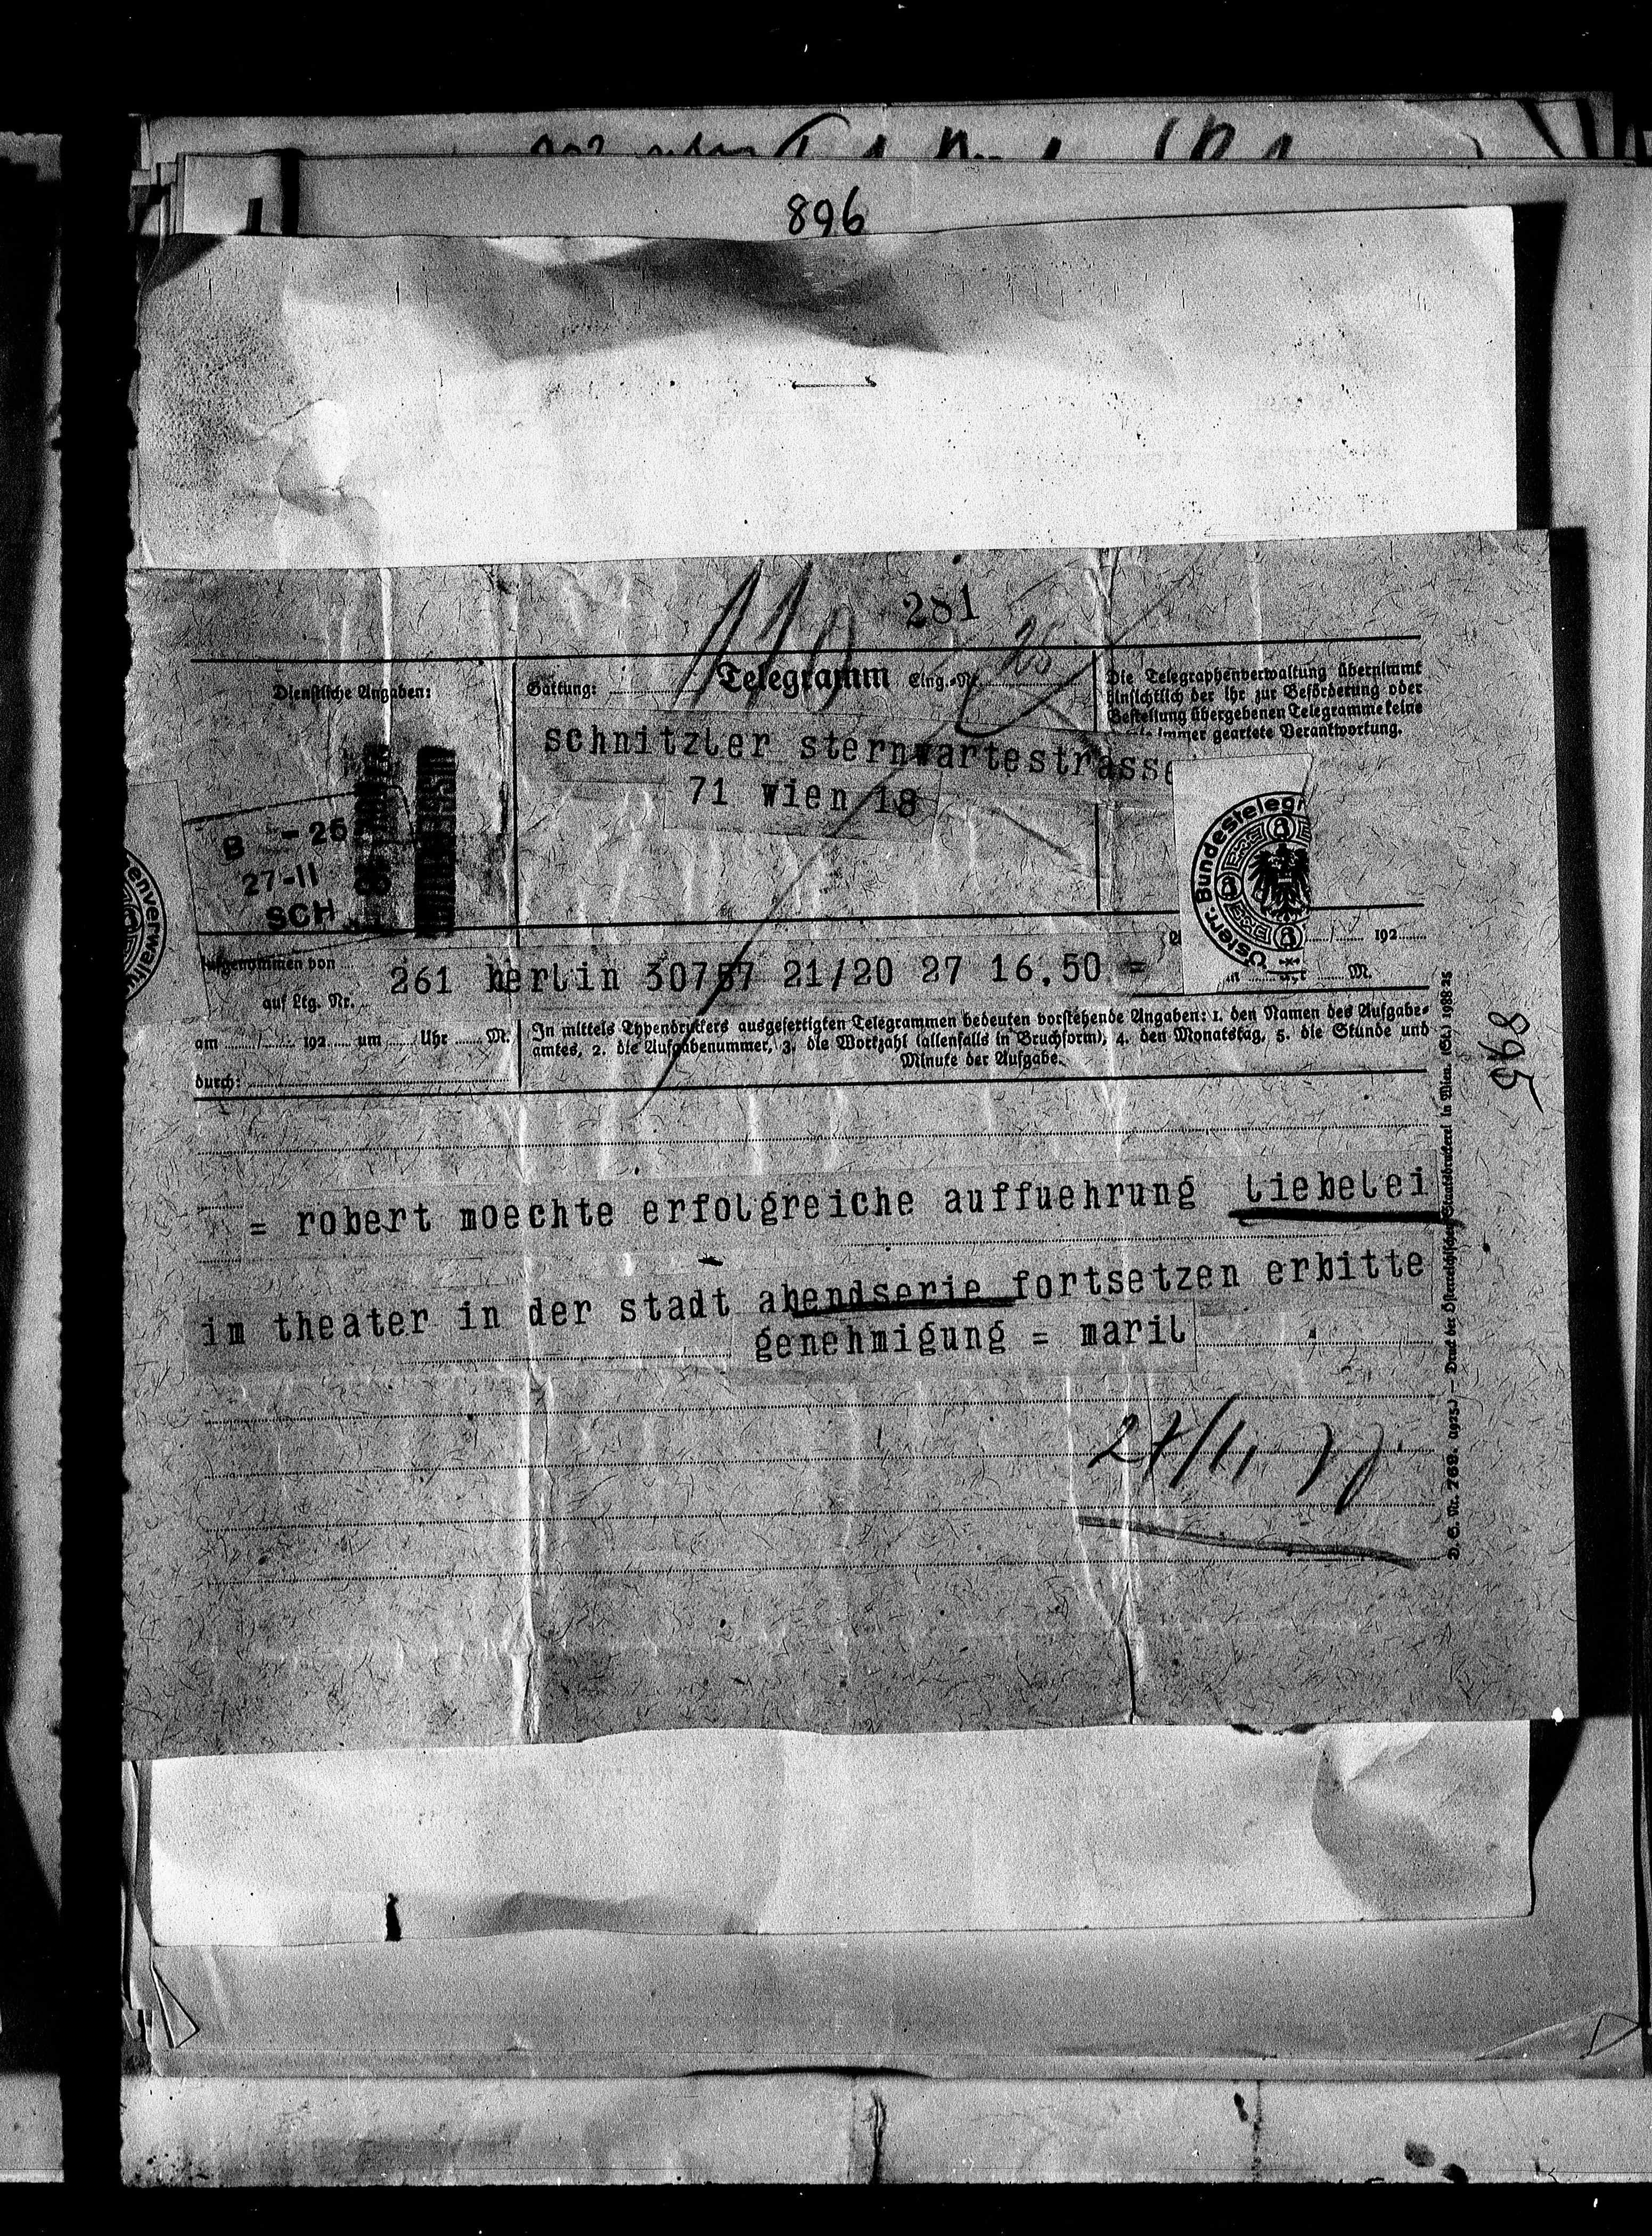 896
281
110
Dienstliche Angaben:
Gattung: Telegramm Eing.-Nr. 26
Die Telegraphenverwaltung übernimmt
hinsichtlich der ihr zur Beförderung oder
Bestellung übergebenen Telegramme keine
immer geartete Verantwortung.
schnitzler sternwartestrasse
71 wien 18
B - 25
27-11
SCH
Österr. Bundestelegr
enverwaltu
Aufgenommen von
auf Ltg. Nr.
261 berlin 30757 21/20 27 16,50 =
192
M.
am 192 um Uhr M.
durch:
In mittels Typendruckers ausgefertigten Telegrammen bedeuten vorstehende Angaben: 1. den Namen des Aufgabe-
amtes, 2. die Aufgabenummer, 3. die Wortzahl (allenfalls in Bruchform), 4. den Monatstag, 5. die Stunde und
Minute der Aufgabe.
= robert moechte erfolgreiche auffuehrung liebelei
im theater in der stadt abendserie fortsetzen erbitte
genehmigung = maril
27/11
D. S. Nr. 769. (1925.) — Druck der Österreichischen Staatsdruckerei in Wien. (St.) 1988 25